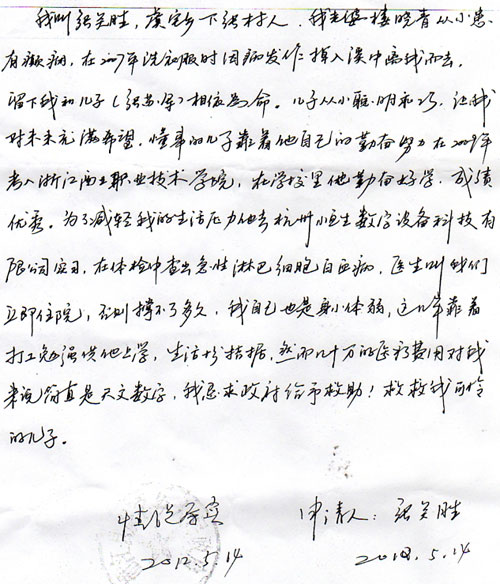 我叫张关胜，虞宅乡下张村人，我老婆楼晓青从小患
有癫痫，在2007年洗衣服时因病发作掉入溪中离我而去，
留下我和儿子（张）相依为命。儿子从小聪明乖巧，让我
对未来充满希望，懂事的儿子靠着他自己的勤奋努力在2009年
考入浙江西土职业技术学院，在学校里他勤奋好学，成绩
优秀。为了减轻我的生活压力他去杭州恒生数字设备科技有
限公司实习，在体检中查出急性淋巴细胞白血病，医生叫我们
立即住院，否则撑不了多久，我自己也是身小体弱，这几年靠着
打工勉强供他上学，生活拮据，然而几十万的医疗费用对我
来说简直是天文数字，我恳求政府给予救助！救救我可怜
的儿子。
情况属实 申请人：张关胜
2012.5.14 2012.5.14